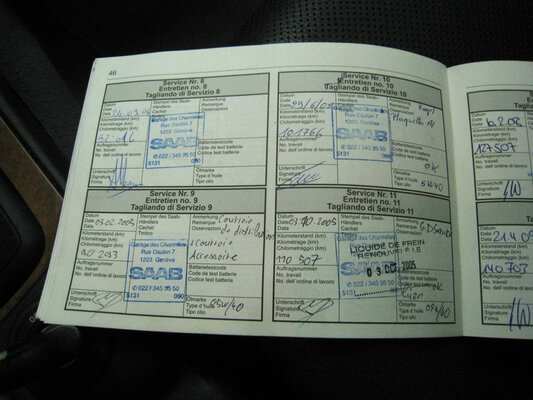 46
Service Nr. 8
Entretien no. 8
Tagliando di Servizio 8
Datum
Date
Data
Stempel des Saab-
Händlers
Cachet
Timbro
Anmerkung
Remarque
Osservazioni
Kilometerstand (km)
Kilométrage (km)
Chilometraggio (km)
Garage des Charmilles
Rue Daubin 7
1203 Genève
SAAB
022 / 345 95 50
5131 000
Auftragsnummer
No. travail
No. dell'ordine di lavoro
Batterietestcode
Code de test batterie
Codice test batteria
Unterschrift
Signature
Firma
Ölmarke
Type d'huile
Tipo olio
Service Nr. 10
Entretien no. 10
Tagliando di Servizio 10
Datum
Date
Data
Stempel des Saab-
Händlers
Cachet
Timbro
Anmerkung
Remarque
Osservazioni
Kilometerstand (km)
Kilométrage (km)
Chilometraggio (km)
101766
Garage des Charmilles
Rue Daubin 7
1203 Genève
SAAB
022 / 345 95 50
5131
Auftragsnummer
No. travail
No. dell'ordine di lavoro
Batterietestcode
Code de test batterie
Codice test batteria
OK
Unterschrift
Signature
Firma
Ölmarke
Type d'huile
Tipo olio
5W40
Service Nr. 9
Entretien no. 9
Tagliando di Servizio 9
Datum
Date
Data
03.02.2005
Stempel des Saab-
Händlers
Cachet
Timbro
Anmerkung
Remarque
Osservazioni
Courroie
Kilometerstand (km)
Kilométrage (km)
Chilometraggio (km)
Garage des Charmilles
Rue Daubin 7
1203 Genève
SAAB
022 / 345 95 50
5131 000
Courroie
Accessoire
Auftragsnummer
No. travail
No. dell'ordine di lavoro
Batterietestcode
Code de test batterie
Codice test batteria
Unterschrift
Signature
Firma
Ölmarke
Type d'huile
Tipo olio
05W/40
Service Nr. 11
Entretien no. 11
Tagliando di Servizio 11
Datum
Date
Data
03.10.2005
Stempel des Saab-
Händlers
Anmerkung
Kilometerstand (km)
Kilométrage (km)
Chilometraggio (km)
110 507
LIQUIDE DE FREIN
RENOUVELE LE
03 OCT 2005
SAAB
022 / 345 95 50
5131
Auftragsnummer
No. travail
No. dell'ordine di lavoro
Unterschrift
Signature
Firma
Ölmarke
Type d'huile
Tipo olio
05W/40
6.2.08
124507
Auftragsnummer
No. travail
No. dell'ordine di lavoro
Unterschrift
Signature
Firma
Datum
Date
Data
Kilometerstand (km)
Kilométrage (km)
Chilometraggio (km)
140703
Auftragsnummer
No. travail
No. dell'ordine di lavoro
Unterschrift
Signature
Firma